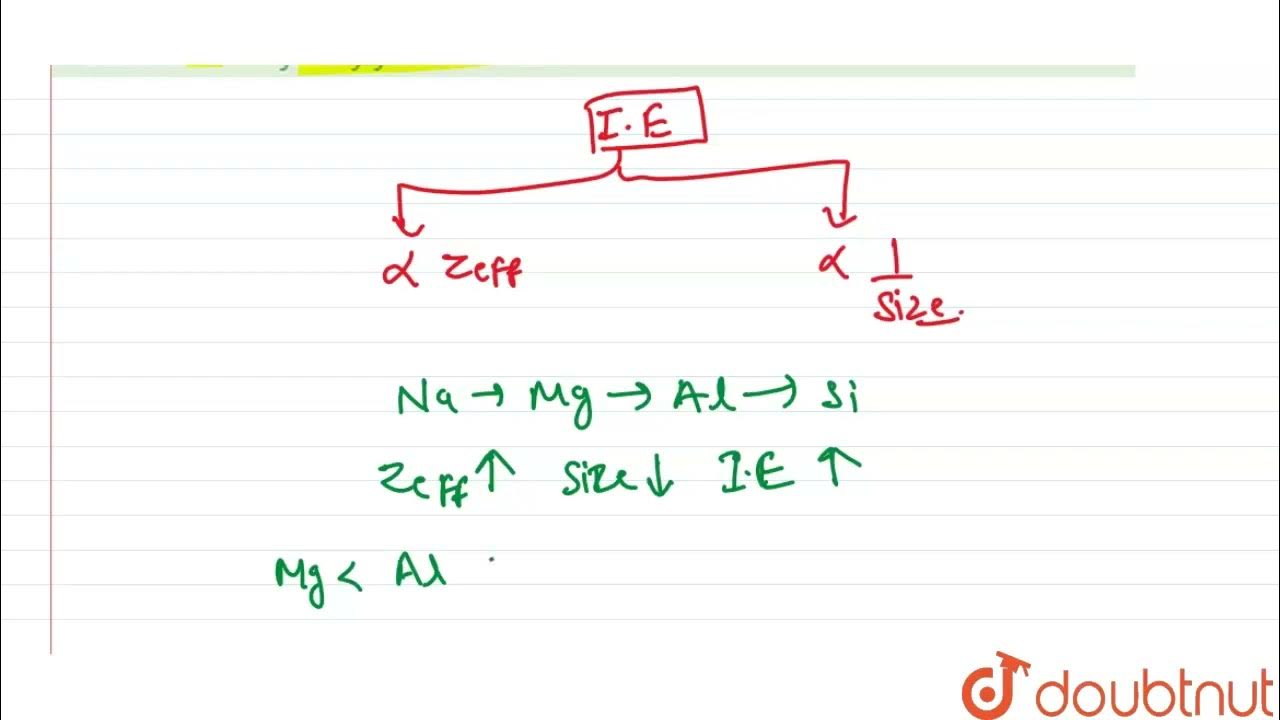 I.E
∝ Zeff
∝ 1/Size.
Na → Mg → Al → Si
Zeff ↑ Size ↓ I.E ↑
Mg < Al
doubtnut